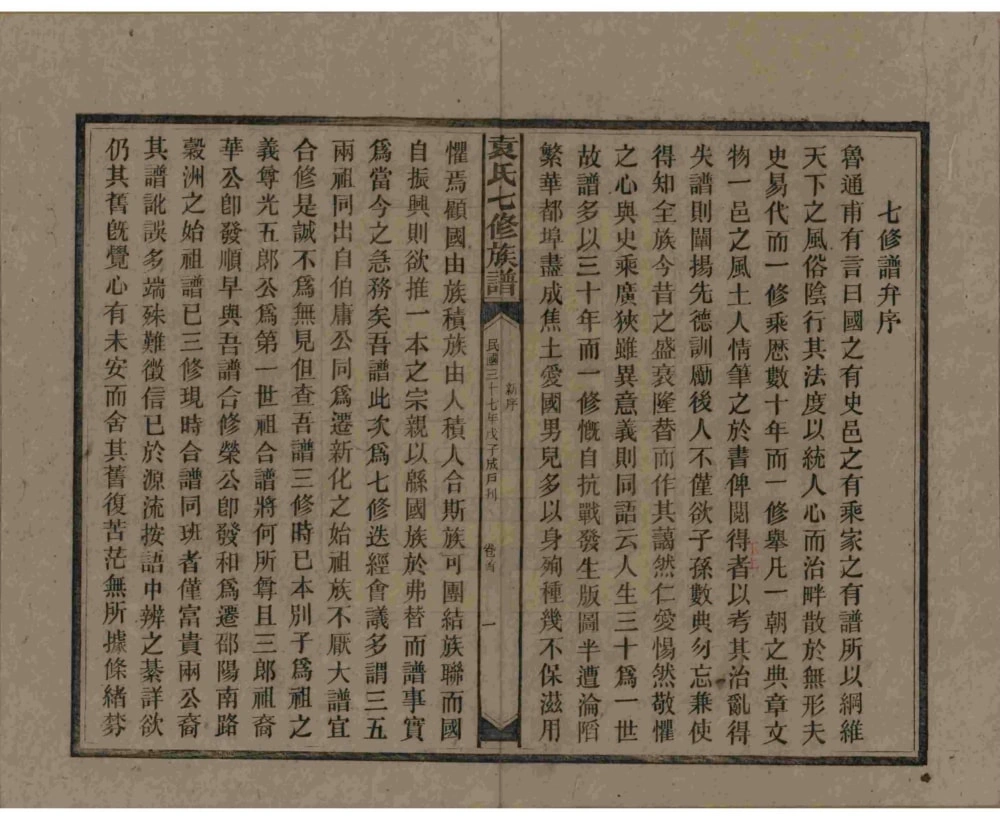 七修譜弁序
魯通甫有言曰國之有史邑之有乘家之有譜所以綱維
天下之風俗陰行其法度以統人心而治畔散於無形夫
史易代而一修乘歷數十年而一修舉凡一朝之典章文
物一邑之風土人情筆之於書俾閱得者以考其治亂得
失譜則闡揚先德訓勵後人不僅欲子孫數典勿忘兼使
得知全族今昔之盛衰隆替而作其藹然仁愛惕然敬懼
之心與史乘廣狹雖異意義則同語云人生三十為一世
故譜多以三十年而一修慨自抗戰發生版圖半遭淪陷
繁華都埠盡成焦土愛國男兒多以身殉種幾不保滋用
袁氏七修族譜
新序
民國三十七年戊子成月刊
卷首
一
懼焉顧國由族積族由人積人合斯族可團結族聯而國
自振興則欲推一本之宗親以緜國族於弗替而譜事實
為當今之急務矣吾譜此次為七修迭經會議多謂三五
兩祖同出自伯庸公同為遷新化之始祖族不厭大譜宜
合修是誠不為無見但查吾譜三修時已本別子為祖之
義尊光五郎公為第一世祖合譜將何所尊且三郎祖裔
華公卽發順早與吾譜合修榮公卽發和為遷邵陽南路
穀洲之始祖譜已三修現時合譜同班者僅富貴兩公裔
其譜訛誤多端殊難徵信已於源流按語中辨之綦詳欲
仍其舊旣覺心有未安而舍其舊復苦茫無所據條緒棼